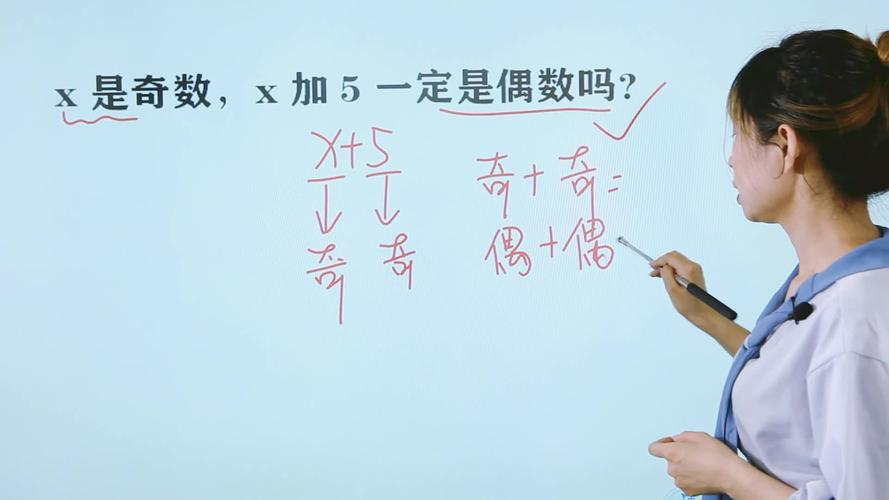 x 是奇数，x 加 5 一定是偶数吗？
x+5
奇 奇
奇+奇=
偶+偶